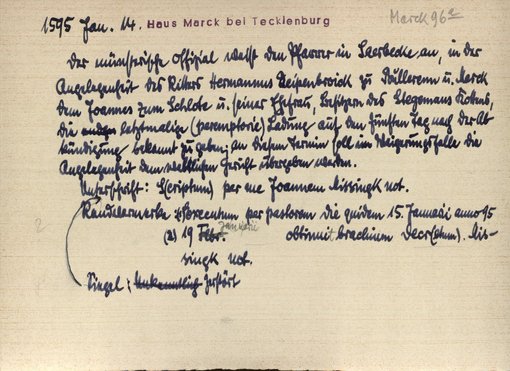 1595 Jan. 14. Haus Marck bei Tecklenburg Marck 96a
Der münsterische Offizial weist den Pfarrer in Saerbecke an, in der
Angelegenheit des Ritters Hermannus zu u. Merck
dem Joannes zum Schlote u. seiner Ehefrau, Besitzern des Stegemans Kottens,
die letztmalige (peremptorie) Ladung auf den fünften Tag nach der Ab
kündigung bekannt zu geben; an diesem Termin soll im Weigerungsfalle die
Angelegenheit dem weltlichen Gericht übergeben werden.
Unterschrift: Scriptum) per me Joannem Bissingk not.
Kanzleivermerke per pastorem die quidem 15. Januarii anno 95
(2) 19 Febr. Januarii obtinuit brachium Decr(etum). Bis-
singk not.
Siegel: Unkenntlich zerstört